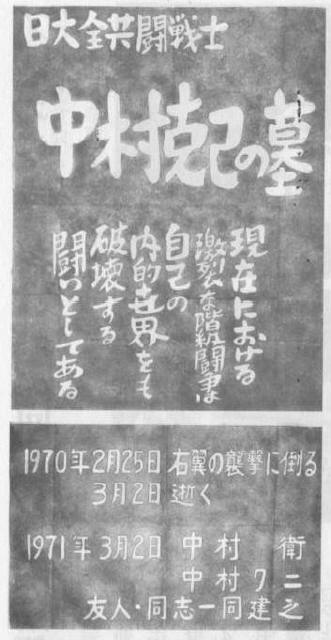 日大全共闘戦士
中村克己の墓
現在における
激烈な階級闘争は
自己の
内的世界をも
破壊する
闘いとしてある
1970年2月25日 右翼の襲撃に倒る
3月2日 逝く
1971年3月2日 中村 衛
中村クニ
友人・同志一同建之